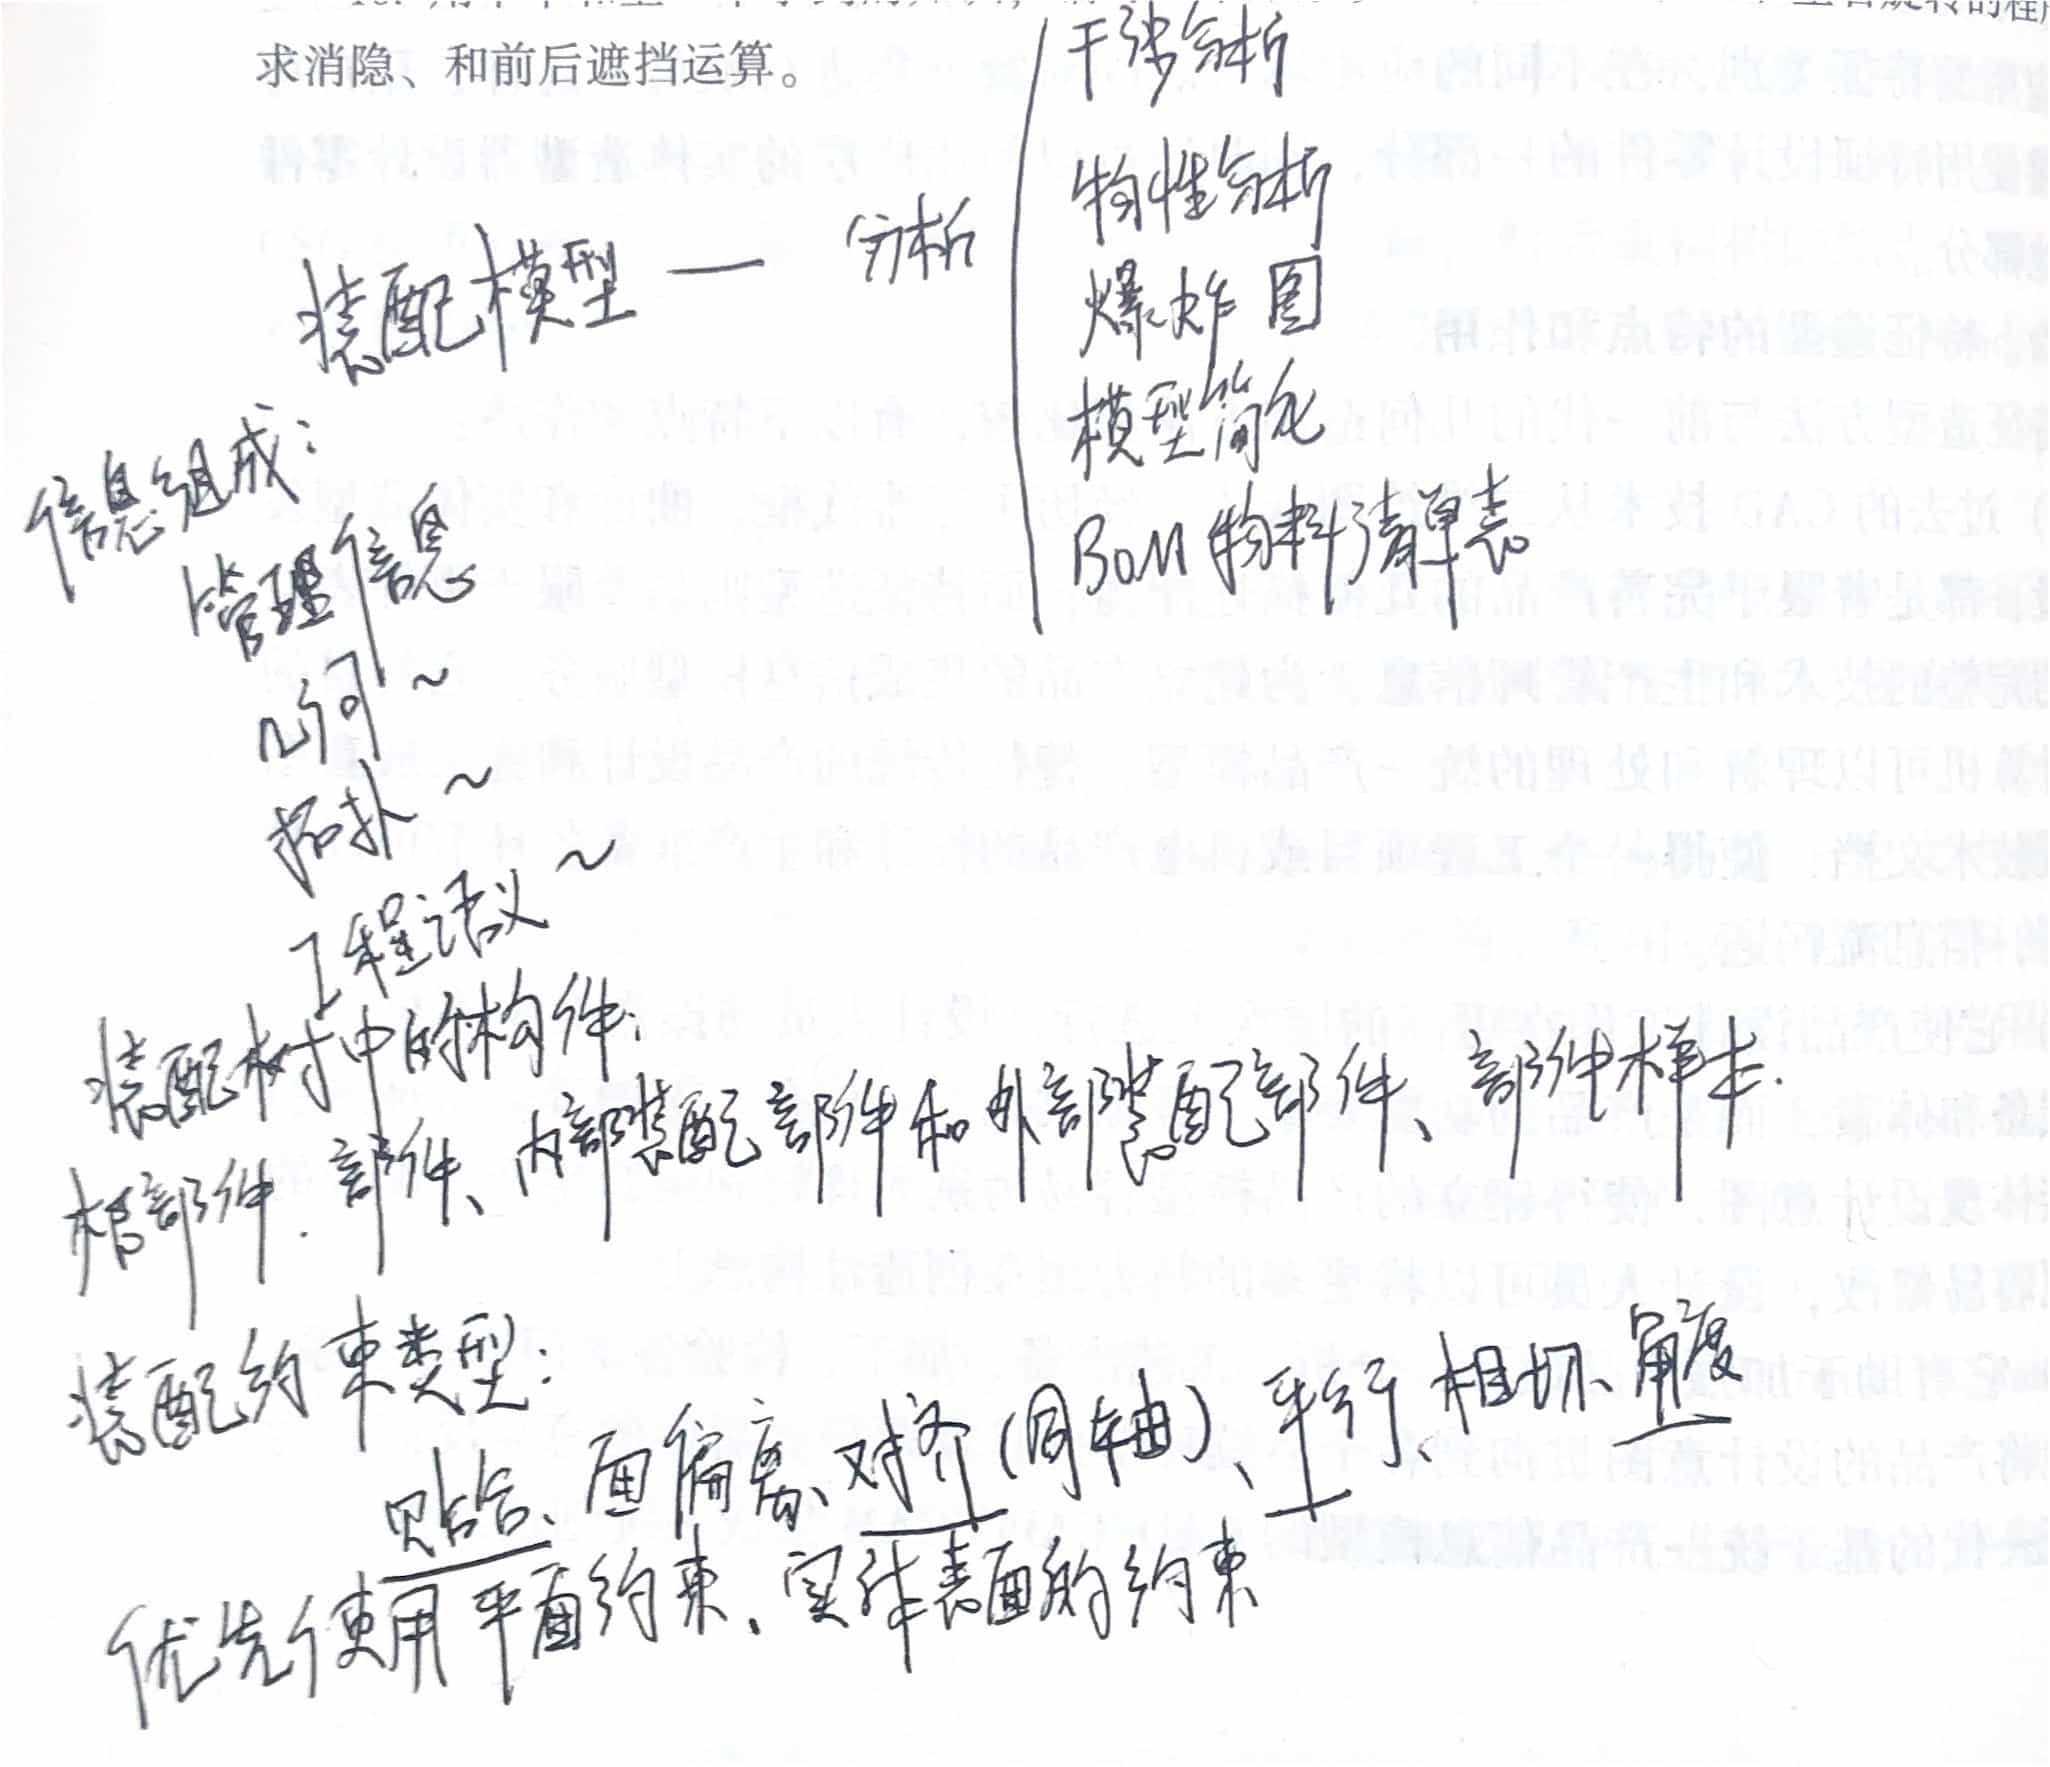 求消隐、和前后遮挡运算。
装配模型 — 分析
干涉分析
物性分析
爆炸图
模型简化
BOM 物料清单表
信息组成：
管理信息
几何 ~
拓扑 ~
工程语义 ~
装配树中的构件：
根部件、部件、内部装配部件和外部装配部件、部件样本.
装配约束类型：
贴合、面偏离、对齐(同轴)、平行、相切、角度
优先使用平面约束、实体表面的约束